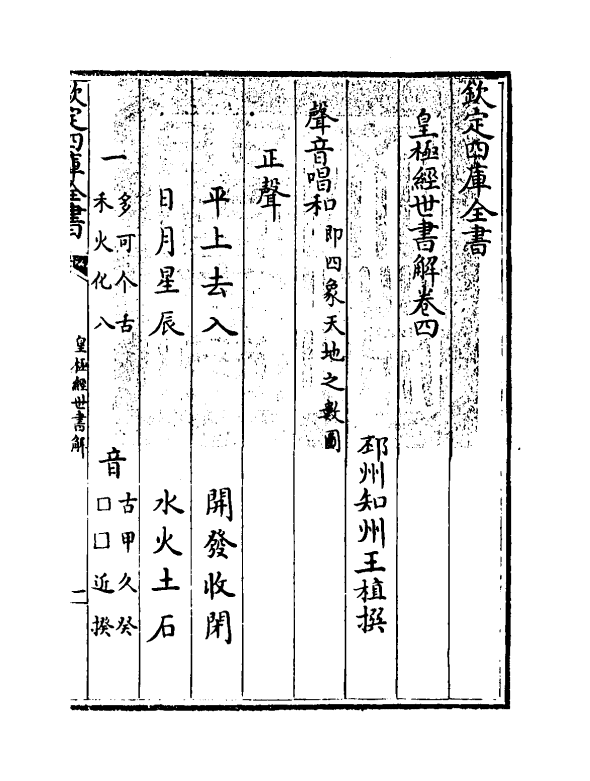 欽定四庫全書
皇極經世書解卷四
邳州知州王植撰
聲音唱和即四象天地之數圖
正聲
平上去入 開發收閉
日月星辰 水火土石
一 多可个舌 音 古甲久癸
禾火化八 □□近揆
欽定四庫全書
皇極經世書解
一